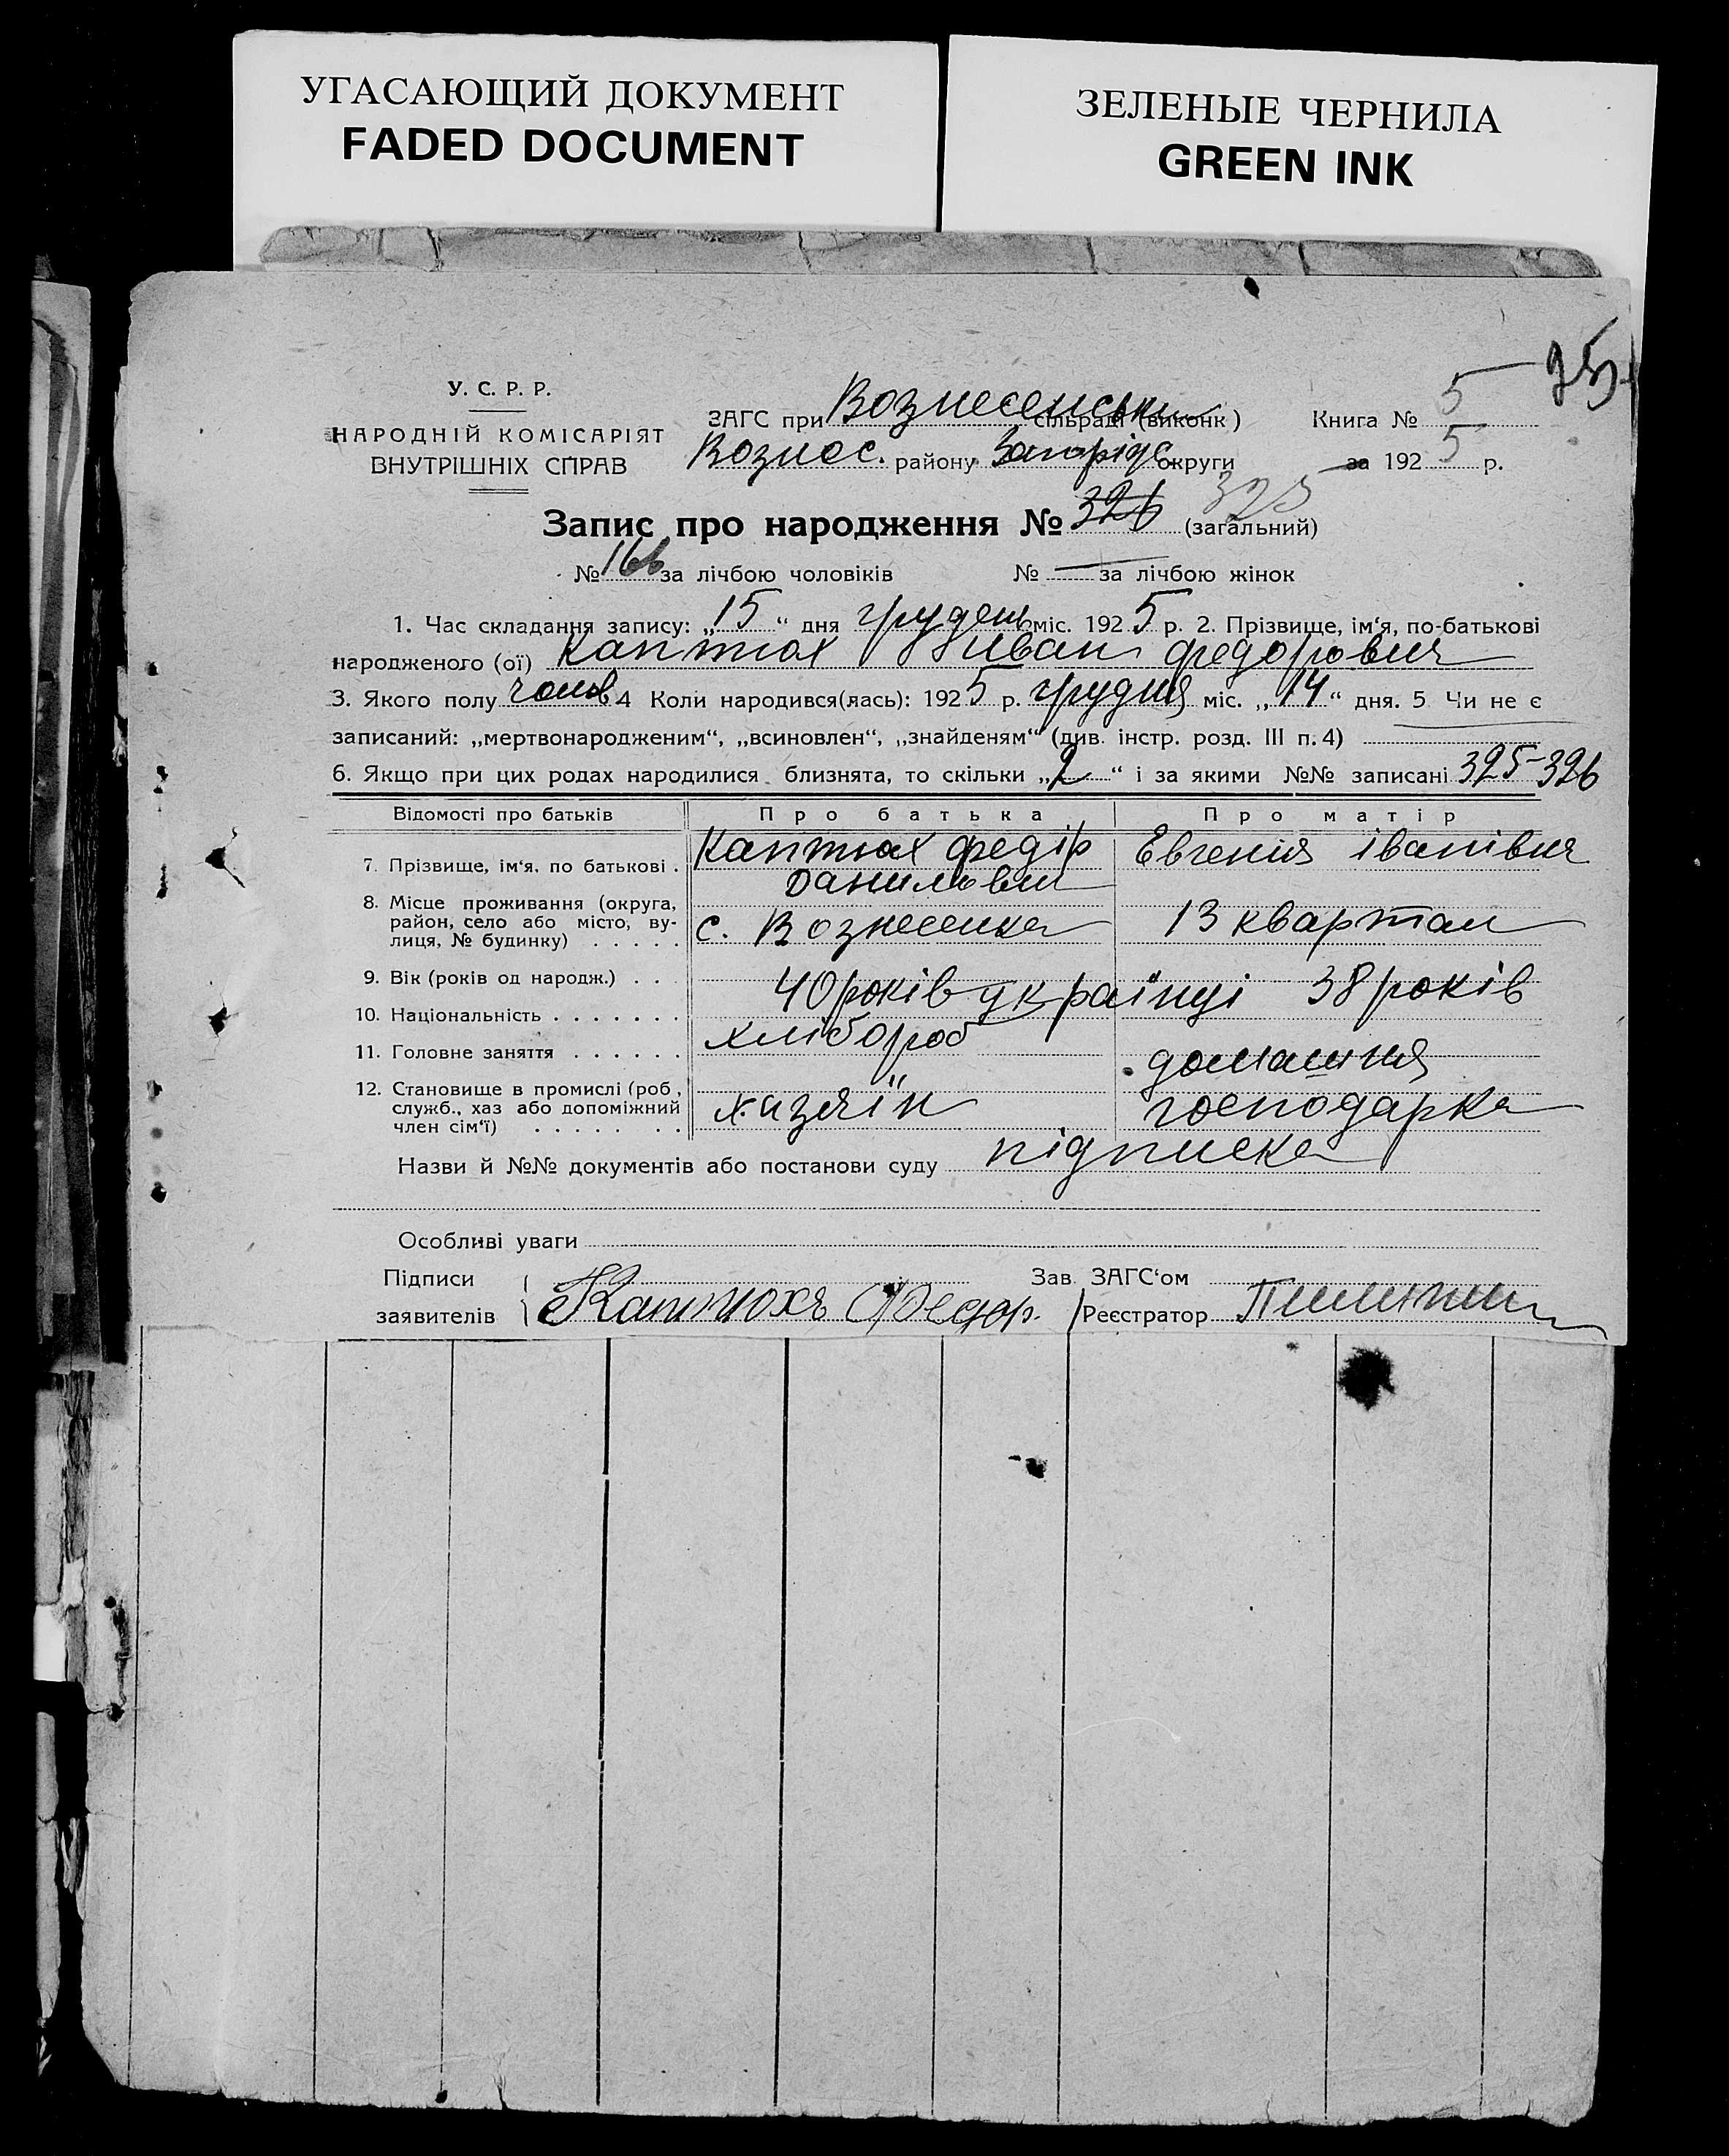 УГАСАЮЩИЙ ДОКУМЕНТ
FADED DOCUMENT
ЗЕЛЕНЫЕ ЧЕРНИЛА
GREEN INK
25
У. С. Р. Р.
НАРОДНІЙ КОМІСАРІЯТ
ВНУТРІШНІХ СПРАВ
ЗАГС при Вознесенськи сільраді (виконк)
Вознес. району Запоріж. округи
Книга № 5
за 1925 р.
Запис про народження № 326 325 (загальний)
№ 166 за лічбою чоловіків № — за лічбою жінок
1. Час складання запису: „15“ дня грудень міс. 1925 р. 2. Прізвище, ім‘я, по-батькові
народженого (ої) Каптюх Иван Федорович
3. Якого полу чолов. 4 Коли народився(лась): 1925 р. грудня міс. „14“ дня. 5 Чи не є
записаний: „мертвонародженим“, „всиновлен“, „знайденям“ (див. інстр. розд. III п. 4)
6. Якщо при цих родах народилися близнята, то скільки „2“ і за якими №№ записані 325-326
Відомості про батьків Про батька Про матір
7. Прізвище, ім‘я, по батькові . Каптюх Федір Данилович Евгенія Іванівна
8. Місце проживання (округа, район, село або місто, вулиця, № будинку) . . . . . с. Вознесенка 13 квартал
9. Вік (років од народж.) . . . 40 років 38 років
10. Національність . . . . . . . українці
11. Головне заняття . . . . . . хлібороб домашня
12. Становище в промислі (роб, служб., хаз або допоміжний член сім‘ї) . . . . . . . хазяїн господарка
Назви й №№ документів або постанови суду підписка
Особливі уваги
Підписи
заявителів Каптюхъ Федор.
Зав. ЗАГС‘ом
Реєстратор